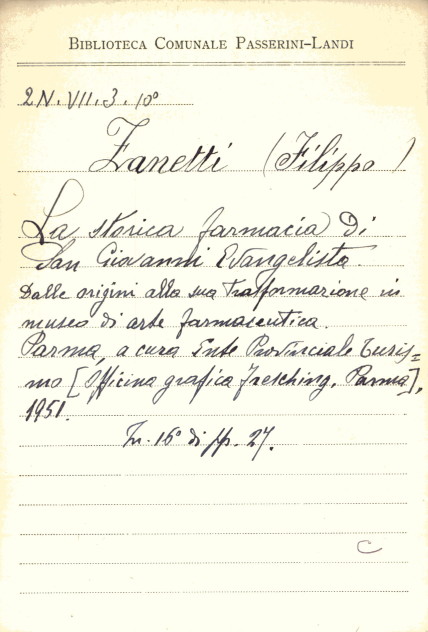 BIBLIOTECA COMUNALE PASSERINI-LANDI
2N. VII. 3. 10°
Zanetti (Filippo)
La storica farmacia di
San Giovanni Evangelista.
Dalle origini alla sua trasformazione in
museo di arte farmaceutica.
Parma, a cura Ente Provinciale Turis=
mo [Officina grafica Fresching, Parma],
1951.
In 16° di pp. 27.
C